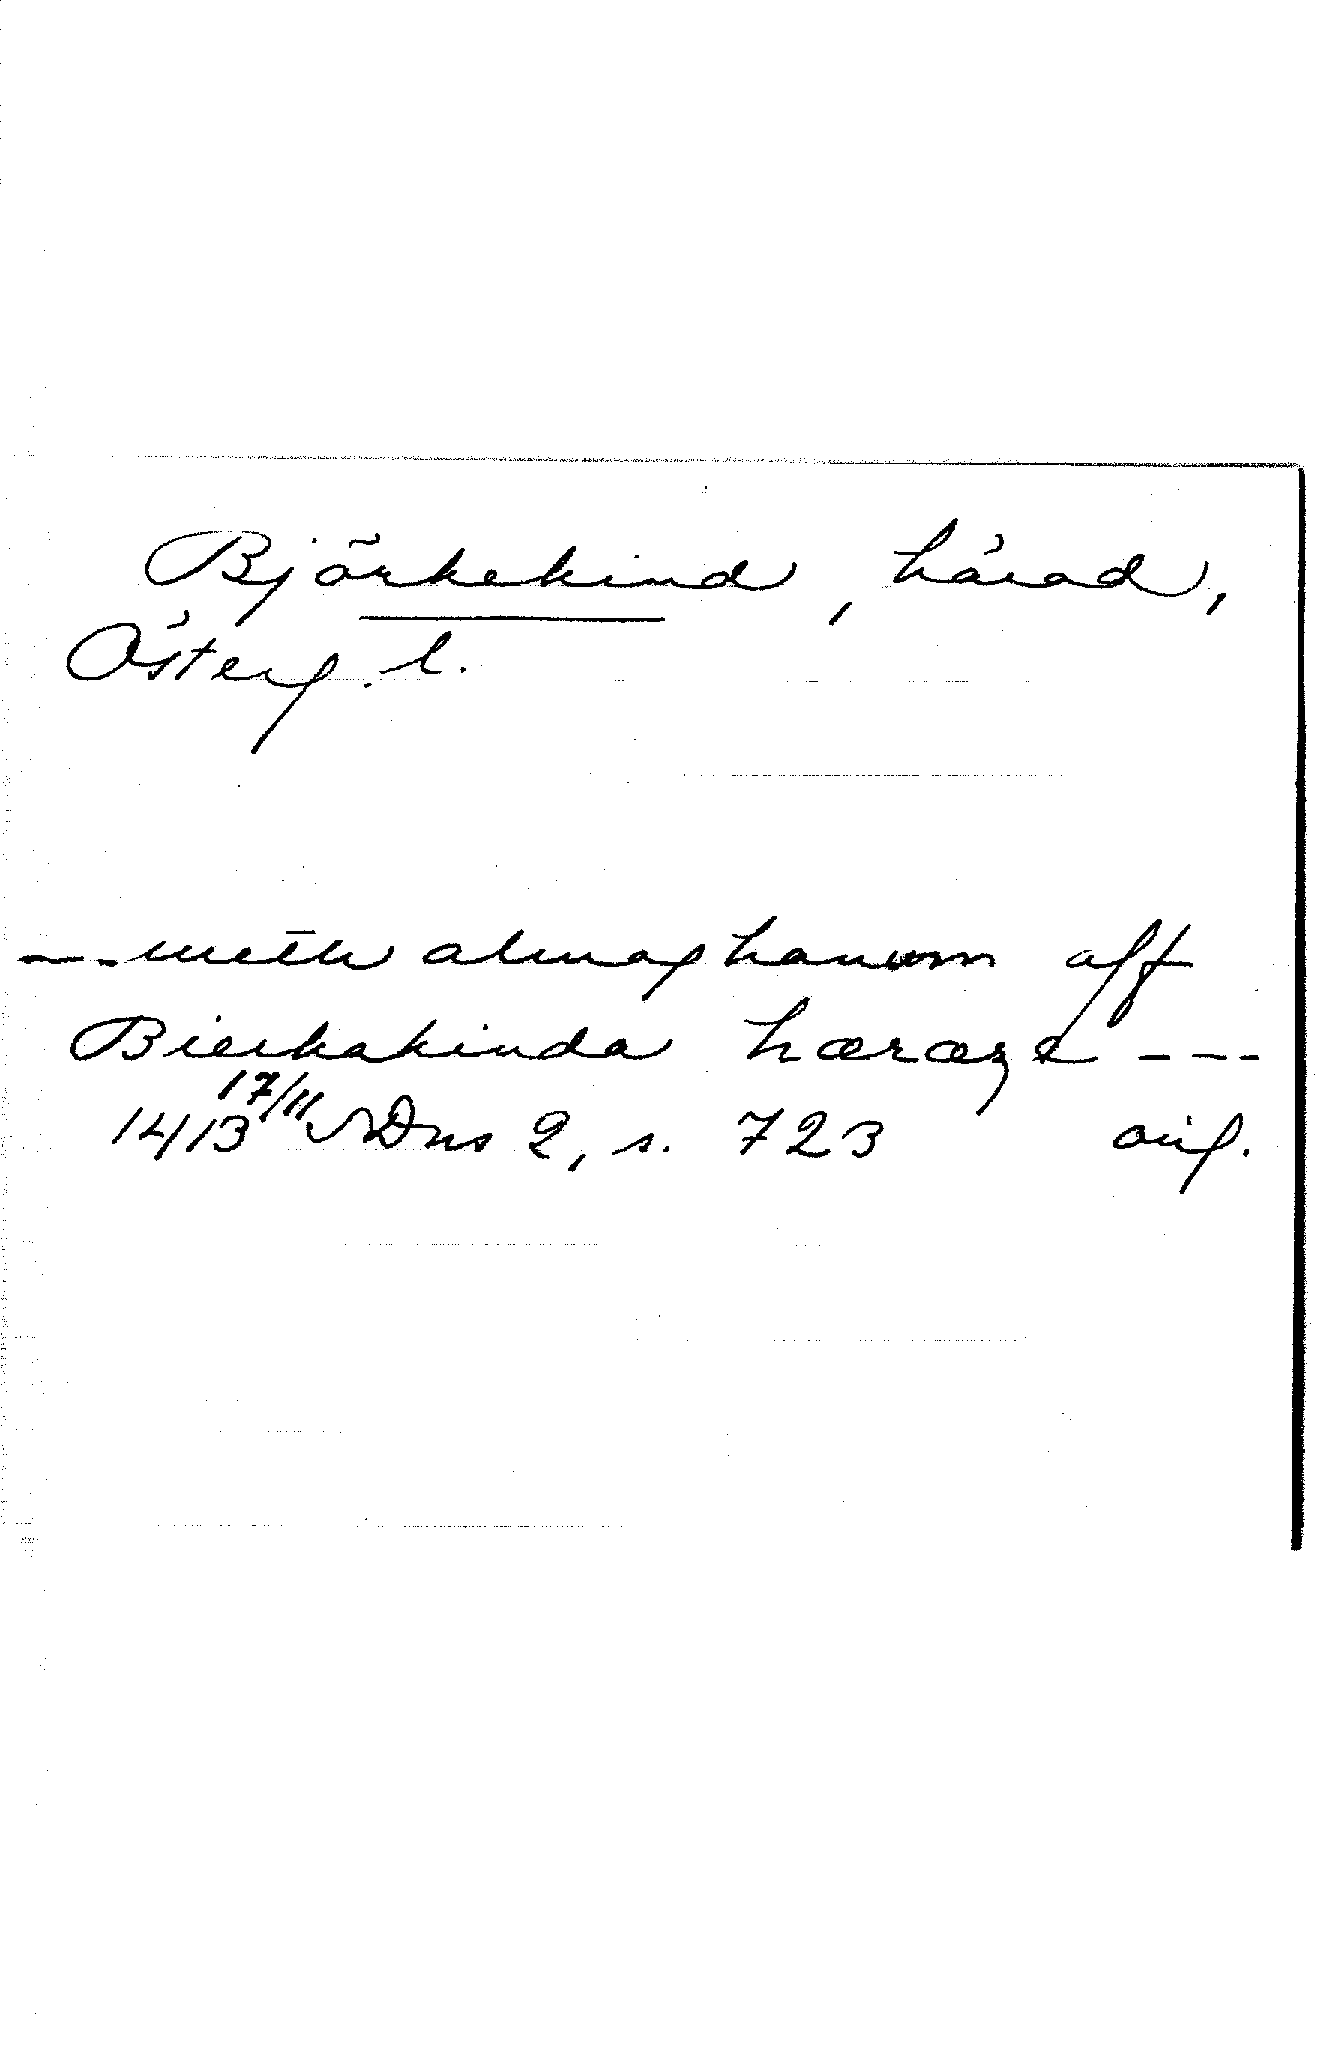 Björkekind, härad,
Österg. l.
--- meth almoghanum aff
Bierkakinda hæræze ---
1413 17/11 SDns 2, s. 723 orig.